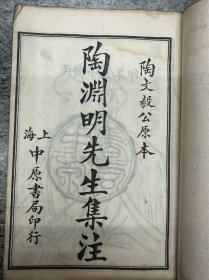 陶文毅公原本
陶淵明先生集注
上海
中原書局印行